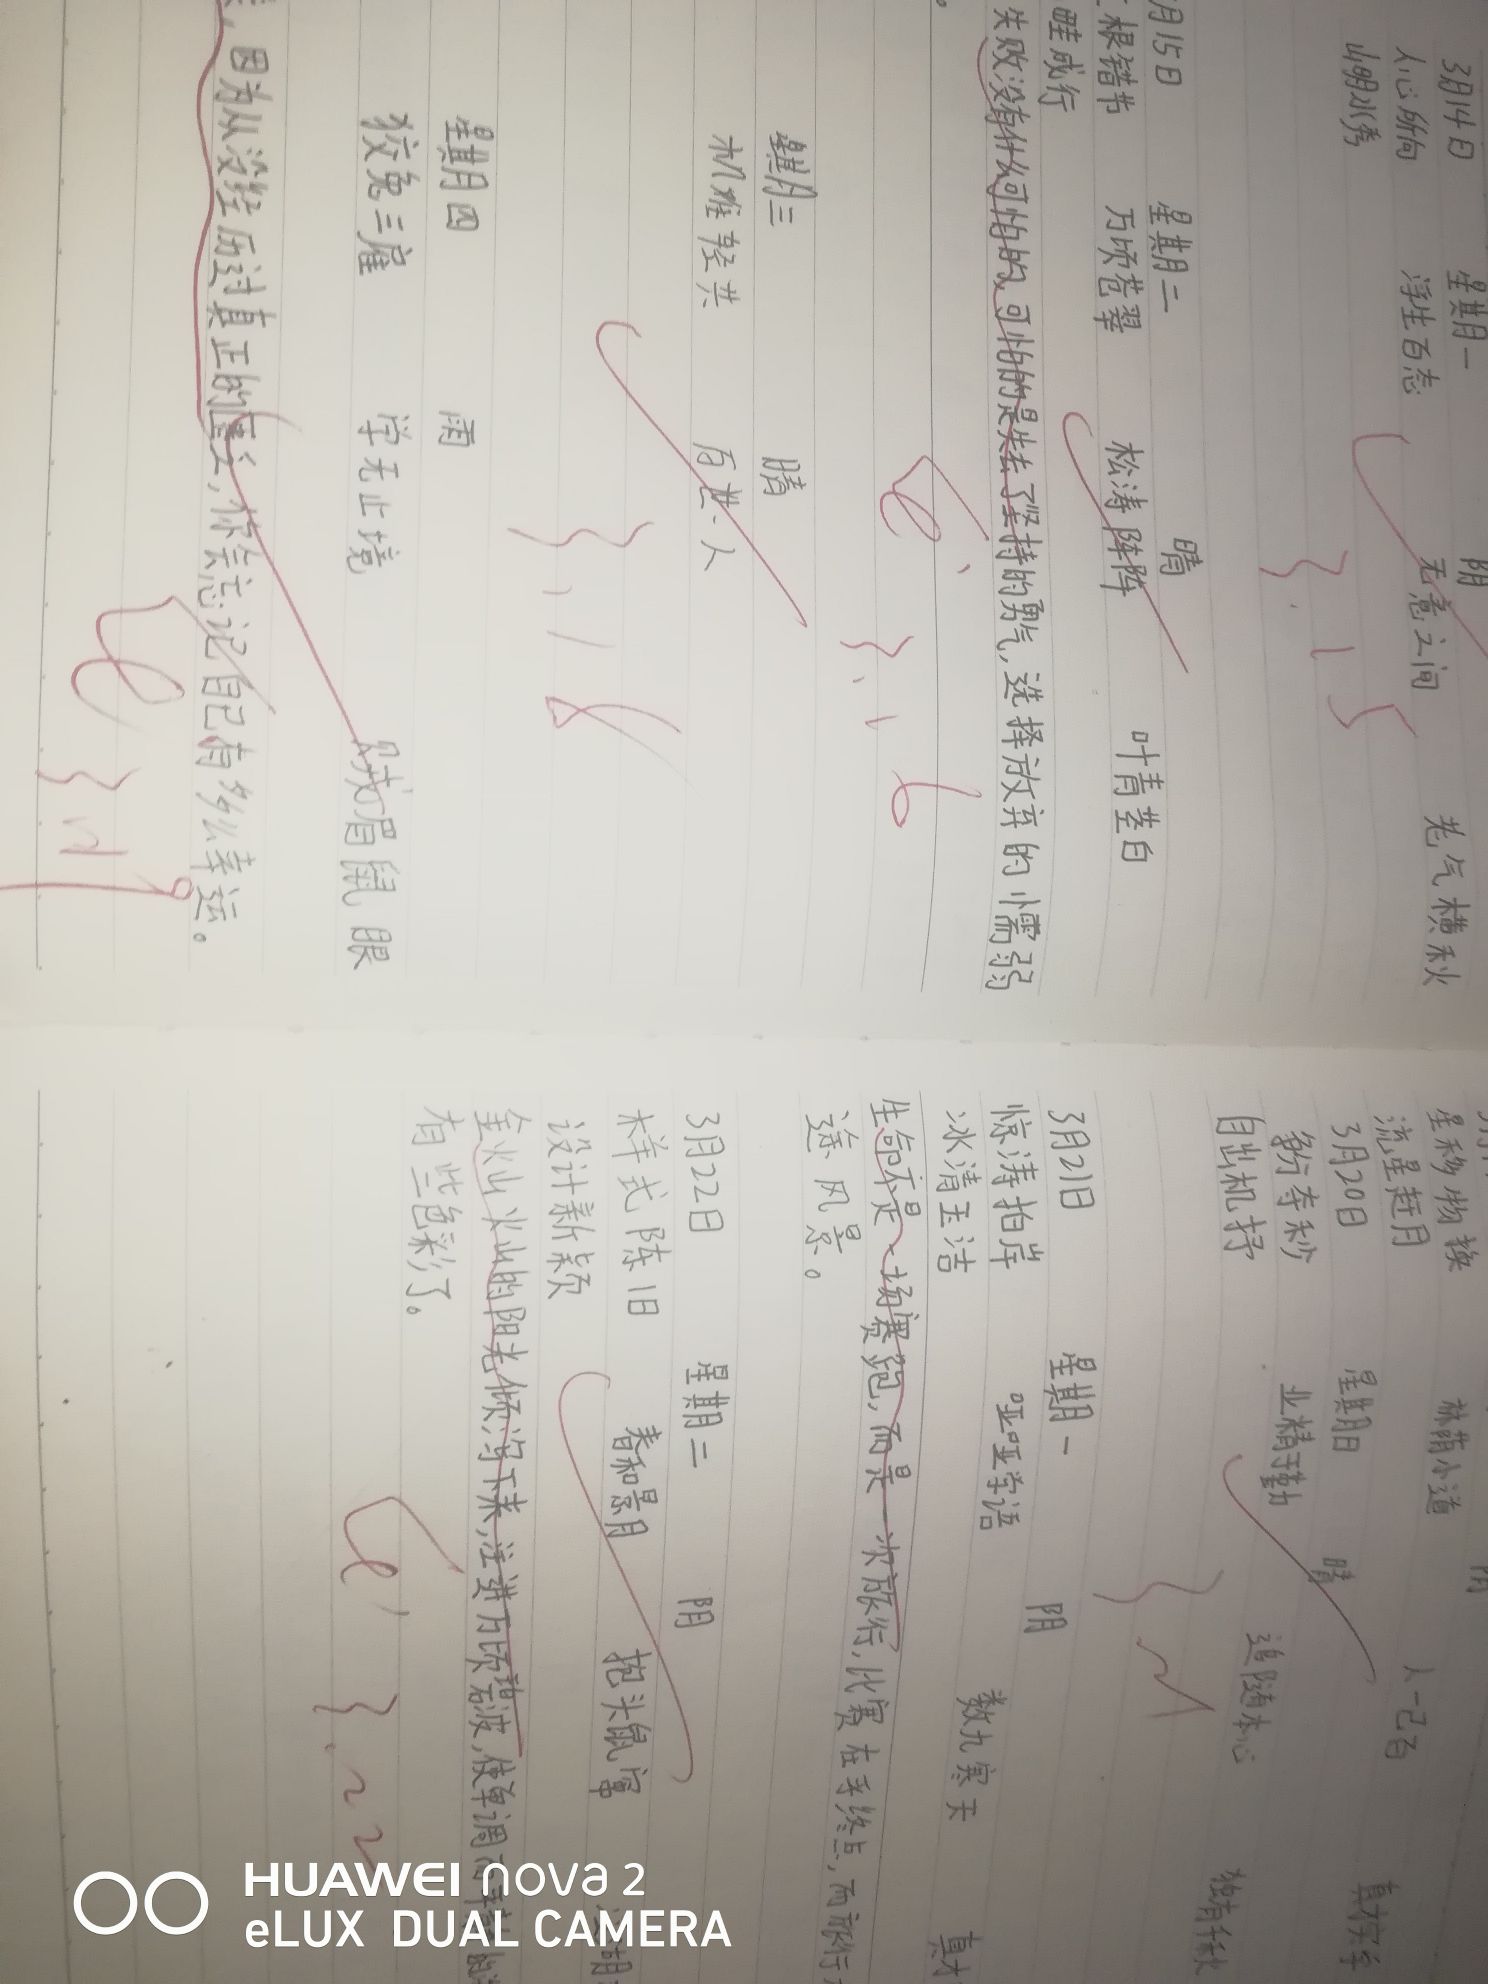 3月14日 星期一 阴
人心所向 浮生百态 无意之间 老气横秋
山明水秀
3.15
月15日 星期二 晴
根错节 万顷苍翠 松涛阵阵 叶青茎白
畦成行
失败没有什么可怕的,可怕的是失去了坚持的勇气,选择放弃的懦弱
。
3.16
星期三 晴
机难轻共 百世一人
3.18
星期四 雨
狡兔三窟 学无止境 贼眉鼠眼
因为从没经历过真正的,你会忘记自己有多么幸运。
3.19
星移物换 林荫小道 人一己百 真才实学
流星赶月
3月20日 星期日 晴
争分夺秒 业精于勤 追随本心 独有千秋
自出机抒
3.21
3月21日 星期一 阴
惊涛拍岸 哑哑学语 数九寒天 真才
冰清玉洁
生命不是一场赛跑,而是一次旅行,比赛在乎终点,而旅行
途风景。
3月22日 星期二 阴
样式陈旧 春和景明 抱头鼠窜 湖
设计新颖
金灿灿的阳光倾泻下来,注进万顷碧波,使单调而平
有些色彩了。
3.22
HUAWEI nova 2
eLUX DUAL CAMERA